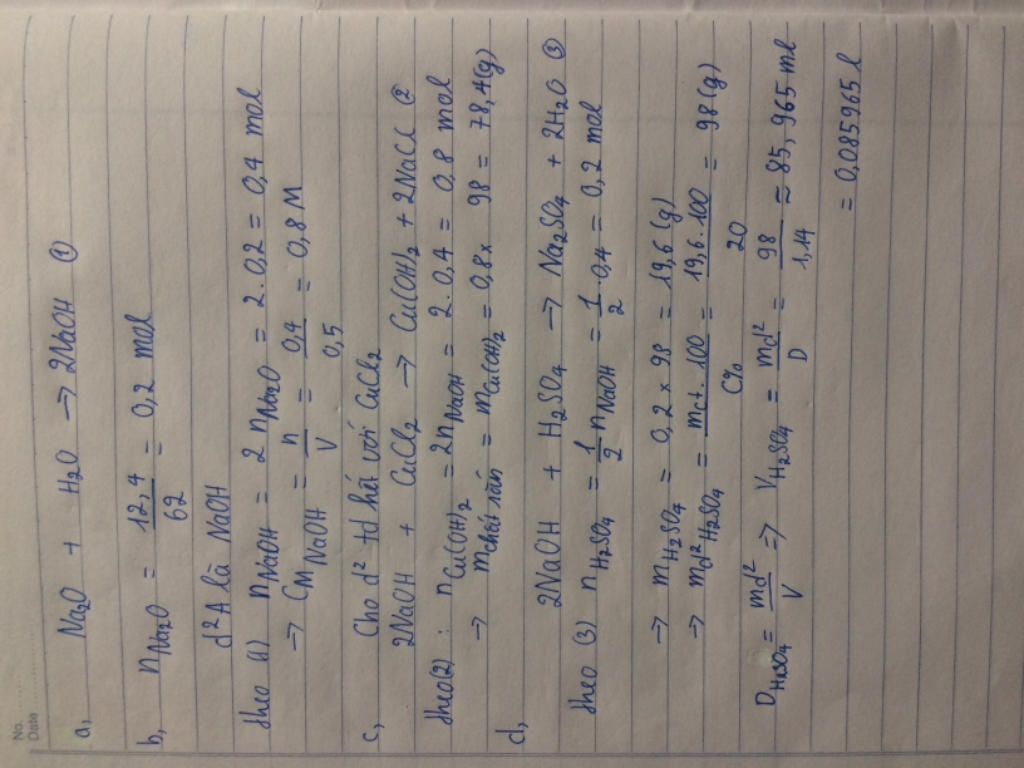 No.
Date
a, Na₂O + H₂O → 2NaOH ①
b, nNa₂O = 12,4/62 = 0,2 mol
d² A là NaOH
theo (1) nNaOH = 2 nNa₂O = 2 . 0,2 = 0,4 mol
→ CM NaOH = n/V = 0,4/0,5 = 0,8 M
c, Cho d² td hết với CuCl₂
2NaOH + CuCl₂ → Cu(OH)₂ + 2NaCl ②
theo (2) : nCu(OH)₂ = 2nNaOH = 2 . 0,4 = 0,8 mol
→ mchất rắn = mCu(OH)₂ = 0,8 x 98 = 78,4(g)
d, 2NaOH + H₂SO₄ → Na₂SO₄ + 2H₂O ③
theo (3) nH₂SO₄ = 1/2 nNaOH = 1/2 . 0,4 = 0,2 mol
→ mH₂SO₄ = 0,2 x 98 = 19,6 (g)
→ md² H₂SO₄ = mct . 100/C% = 19,6 . 100/20 = 98 (g)
DH₂SO₄ = md²/V => VH₂SO₄ = md²/D = 98/1,14 ≈ 85,965 ml
= 0,085965 l